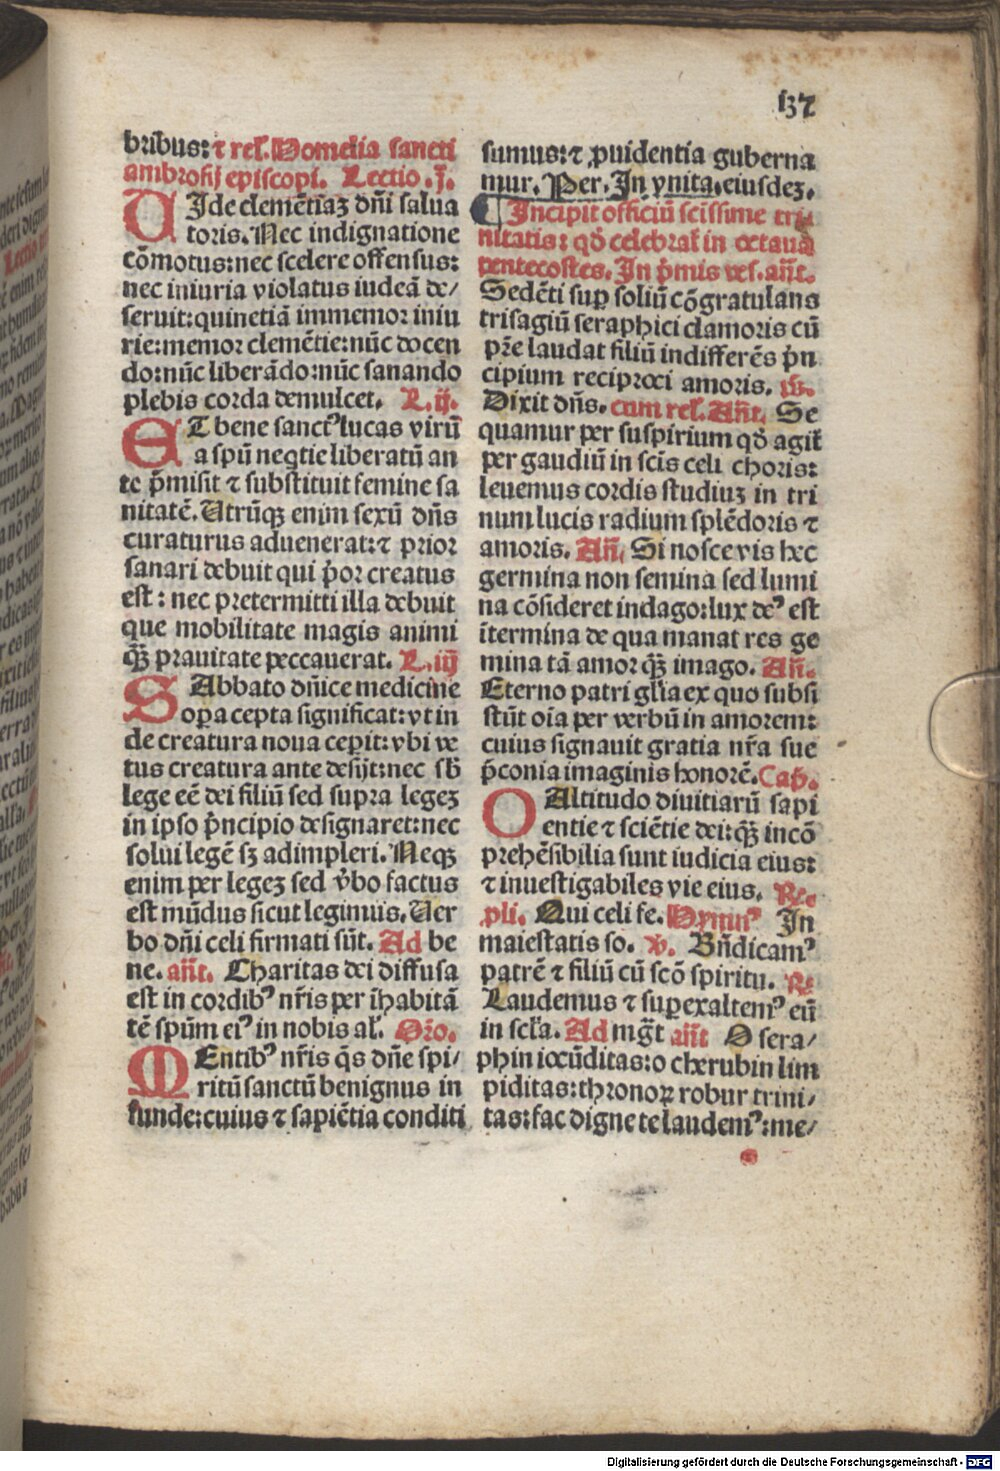 137
bribus: ⁊ rel̃. Homelia sancti
ambrosij episcopi. Lectio .j.
UIde clemẽtiaʒ dñi salua
toris. Nec indignatione
cõmotus: nec scelere offensus:
nec iniuria violatus iudeã de/
seruit: quinetiã immemor iniu
rie: memor clemẽtie: nũc docen
do: nũc liberãdo: nũc sanando
plebis corda demulcet. L. ij.
ET bene sanctꝰ lucas virũ
a spũ neqtie liberatũ an
te p̃misit ⁊ substituit femine sa
nitatẽ. Utrũqꝫ enim sexũ dñs
curaturus aduenerat: ⁊ prior
sanari debuit qui p̃or creatus
est: nec pretermitti illa debuit
que mobilitate magis animi
qꝫ̃ prauitate peccauerat. L. iij
SAbbato dñice medicine
oꝑa cepta significat: vt in
de creatura noua ceperit: vbi ve
tus creatura ante desijt: nec sb̃
lege eẽ dei filiũ sed supra legeʒ
in ipso p̃ncipio designaret: nec
solui legẽ sʒ adimpleri. Neqꝫ
enim per legeʒ sed v̓bo factus
est mũdus sicut legimus. Uer
bo dñi celi firmati sũt. Ad be
ne. añt. Charitas dei diffusa
est in cordibꝰ nr̃is per ĩhabitã
tẽ spũm eiꝰ in nobis al̃. Or̃o.
MEntibꝰ nr̃is q̃s dñe spi/
ritũ sanctũ benignus in
funde: cuius ⁊ sapiẽtia conditi
sumus: ⁊ ꝓuidentia guberna
mur. Per. In vnita. eiusdeʒ.
Incipit officiũ sctissime tri
nitatis: qd̓ celebrat̃ in octaua
pentecostes. In p̃mis ves. añt.
Sedẽti suꝑ soliũ cõgratulans
trisagiũ seraphici clamoris cũ
pr̃e laudat filiũ indifferẽs p̃n
cipium reciproci amoris. ps̃.
Dixit dñs. cum rel̃. Añt. Se
quamur per suspirium qd̓ agit̃
per gaudiũ in scis̃ celi choris:
leuemus cordis studiuʒ in tri
num lucis radium splẽdoris ⁊
amoris. Añ. Si nosce vis hec
germina non semina sed lumi
na cõsideret indago: lux deꝰ est
ĩtermina de qua manat res ge
mina tã amor qꝫ̃ imago. Añ.
Eterno patri gl̃ia ex quo subsi
stũt oĩa per verbũ in amorem:
cuius signauit gratia nr̃a sue
p̃conia imaginis honorẽ. Cap̃.
O Altitudo diuitiarũ sapi
entie ⁊ sciẽtie dei: qꝫ̃ incõ
prehẽsibilia sunt iudicia eius:
⁊ inuestigabiles vie eius. ℟.
pli. Qui celi fe. Hymnꝰ In
maiestatis so. ℣. Bñdicamꝰ
patrẽ ⁊ filiũ cũ scõ spiritu. ℟
Laudemus ⁊ suꝑexaltemꝰ eũ
in scl̃a. Ad mgt̃ añt O sera/
phin iocũditas: o cherubin lim
piditas: thronoꝝ robur trini/
tas: fac digne te laudemꝰ: me/
Digitalisierung gefördert durch die Deutsche Forschungsgemeinschaft - DFG